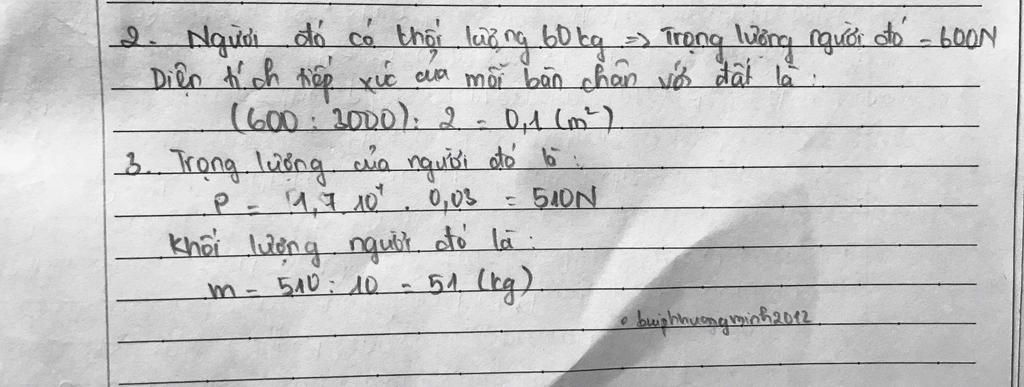 2. Người đó có khối lượng 60kg => Trọng lượng người đó = 600N
Diện tích tiếp xúc của mỗi bàn chân với đất là:
(600 : 3000) : 2 = 0,1 (m²)
3. Trọng lượng của người đó là:
P = 1,7.10⁴ . 0,03 = 510N
Khối lượng người đó là:
m = 510 : 10 = 51 (kg)
• buiphhuongminh2012